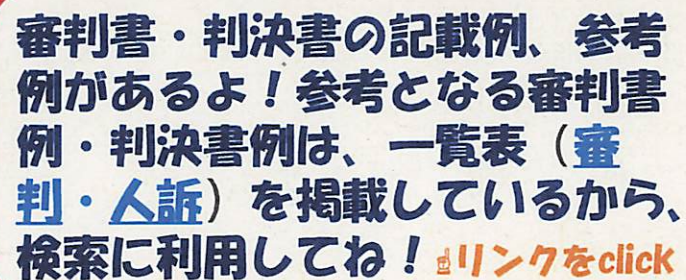 審判書・判決書の記載例、参考
例があるよ！参考となる審判書
例・判決書例は、一覧表（審
判・人訴）を掲載しているから、
検索に利用してね！☝リンクをclick